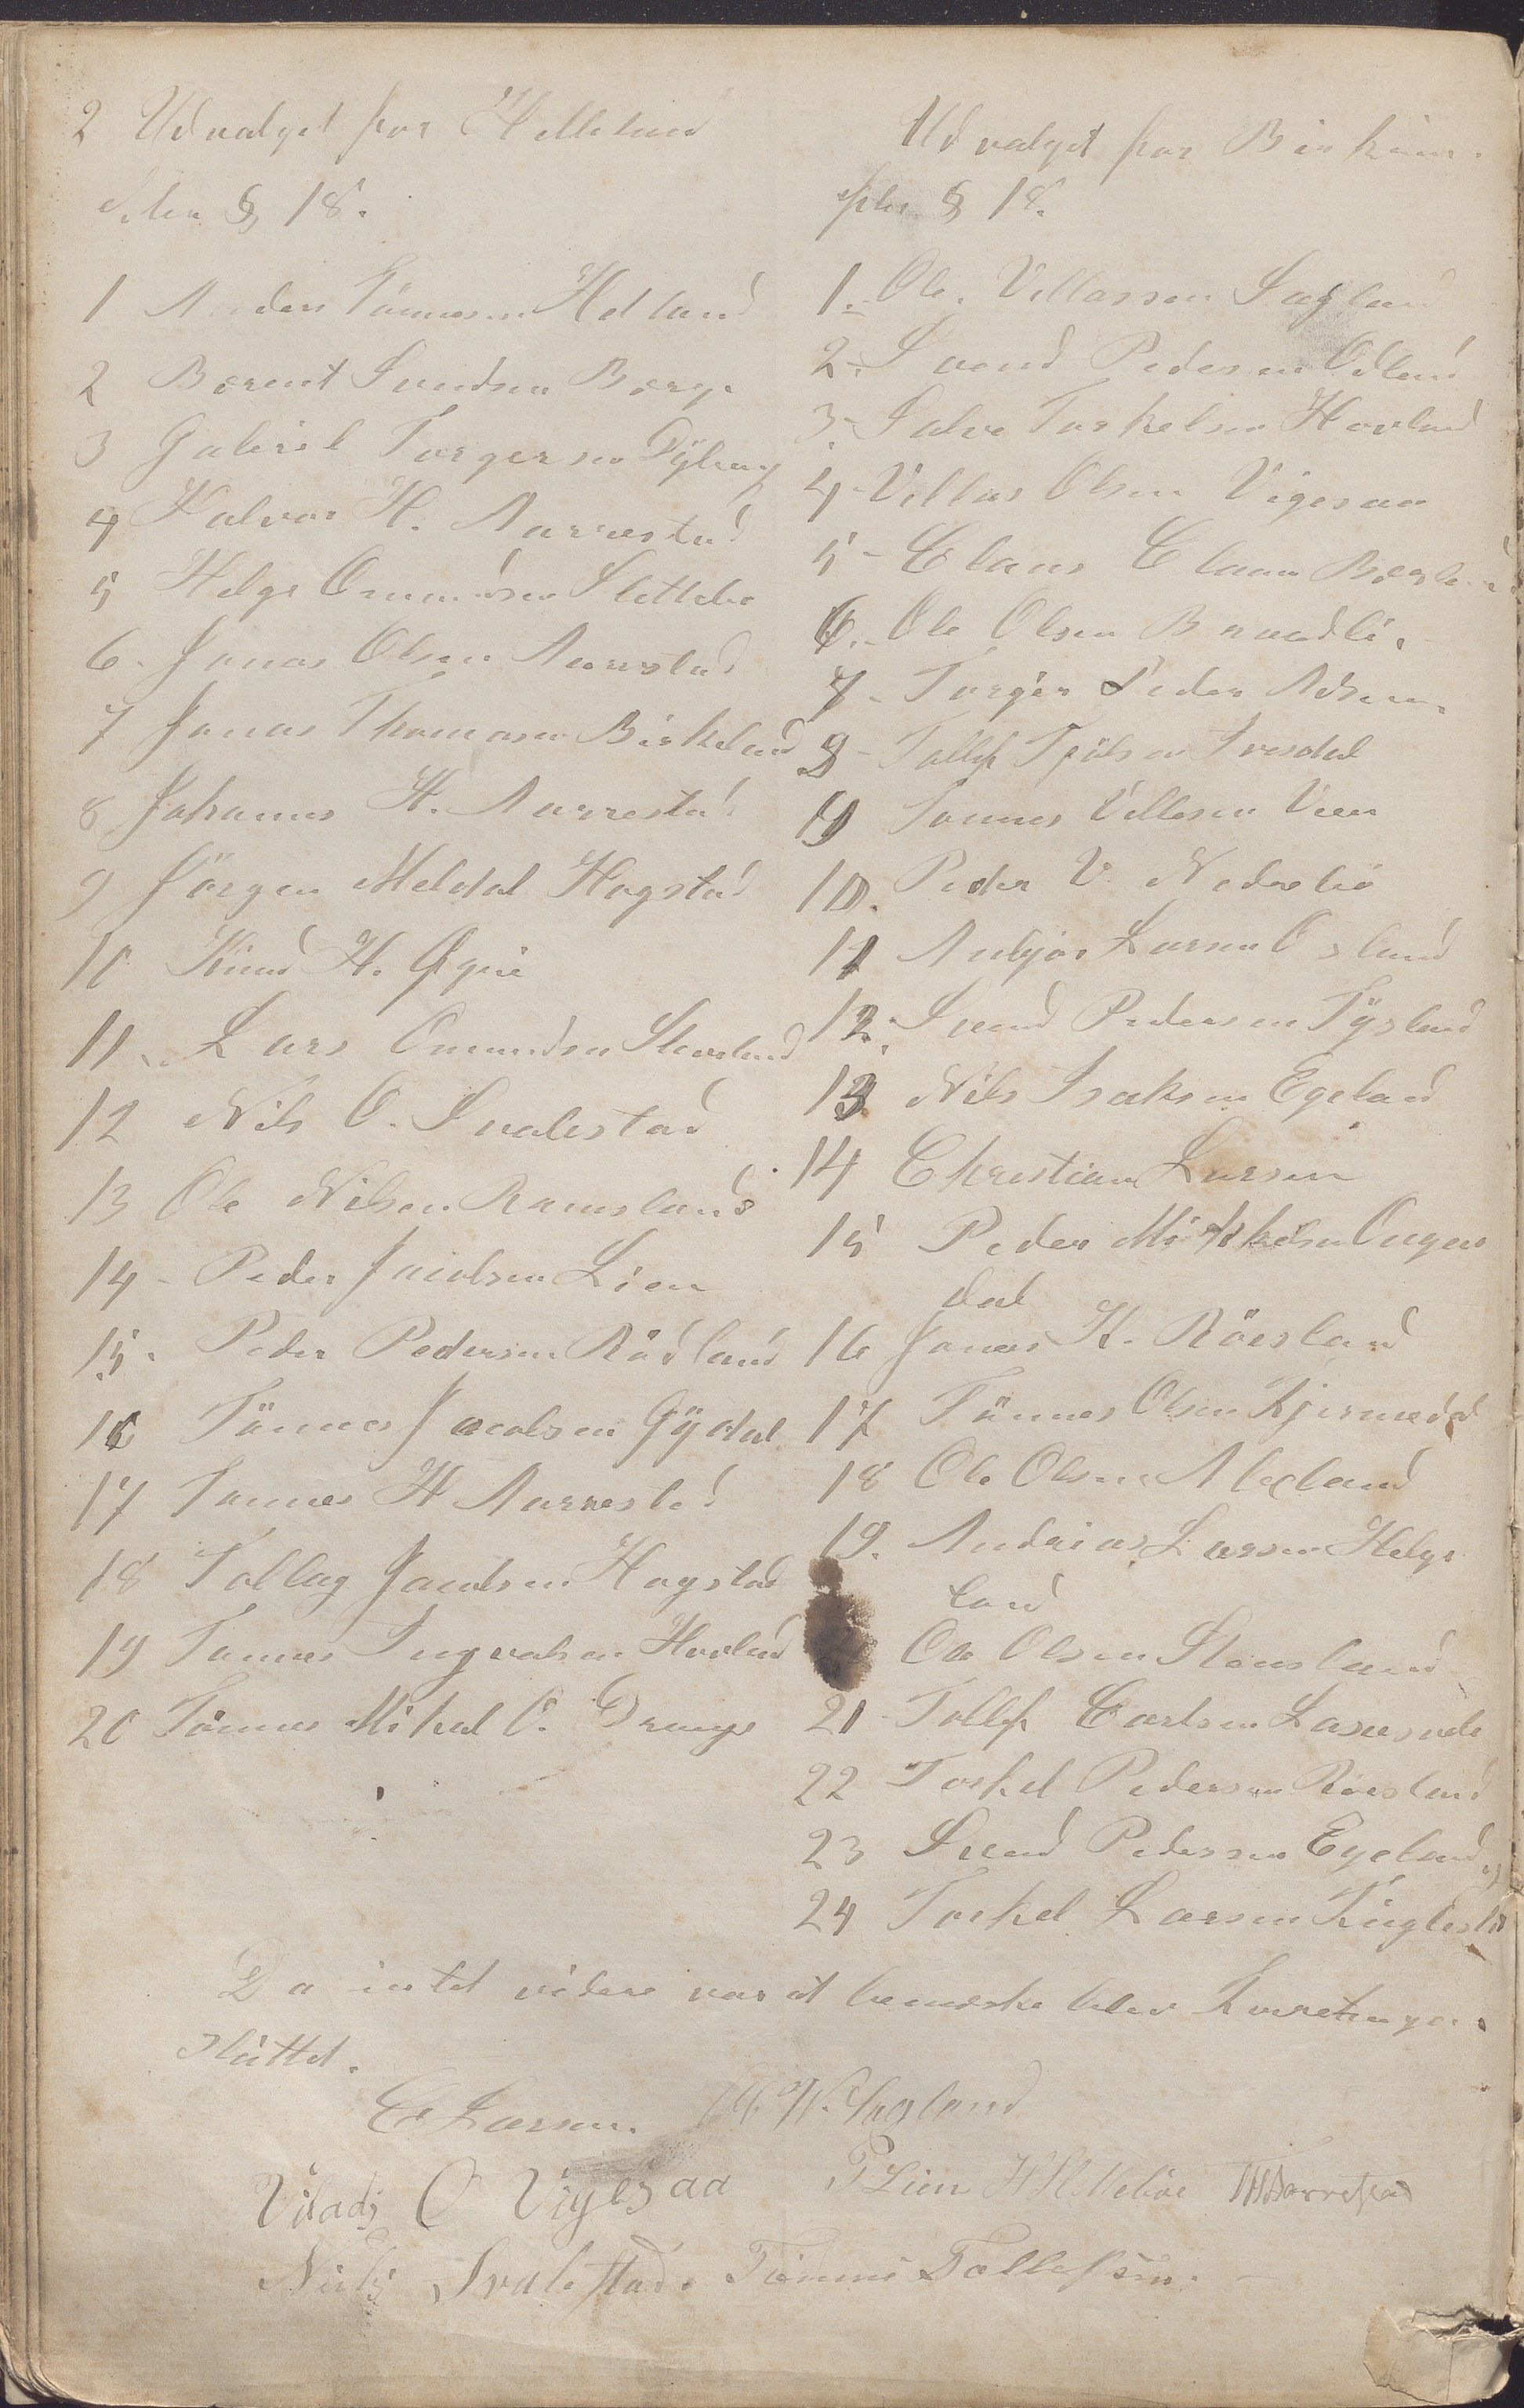 2 Udvalget for Helleland
§ 18.
1 Anders Tönnesen Hetland
2 Berent Svendsen Berge
3 Gabriel Torgersen Dybing
4 Halvor H. Aarrestad
5 Helge Ommundsen Slettebø
6. Jonas Olsen Aarrestad
7 Jonas Thomasen Birkeland
8 Johannes H. Aarrestad
9 Jörgen Meldal Hogstad
10 Knud H. Øgrei
11. Lars Omundsen Skarland
12 Nils O. Svalestad
13 Ole Nilsen Ramsland
14 - Peder Jacobsen Lien
15. Peder Pedersen Rödland
16 Tönnes Jacobsen Gÿdal
17 Tønnes H Aarrestad
18 Tollag Jacobsen Hogstad
19 Tønnes Ingvalsen Hovland
20 Tönnes Mikal O. Drange
Udvalget for Birkrem.
§ 18.
1.- Ole. Villassen Sagland
2.- Svend Pedersen Odland
3.- Salve Torkelsen Hovland
4- Villas Olsen Vigesaa
5 - Claus Clausen Berland
6.- Ole Olsen Brandli.
7 - Torger Peder
8 - Tollef Tjölsen Ivesdal
9 Tønnes Villesen Veen
10. Peder V. Nedrebö
11 Anbjør Larsen Osland
12. Svend Pedersen Tÿsland
13 Nils Isaksen Egeland
14 Christian Larsen
15 Peder Mikkelsen Ougen
dal
16 Jonas K. Röisland
17 Tönnes Olsen Kjermedal
18 Ole Olsen Aleland
19. Andreas Larsen Helge
land
Ole Olsen Stensland
21 - Tollef Carlsen Lauesvele
22 Torkel Pedersen Røisland
23 Svend Pedersen Egeland
24 Torkel Larsen
Da intet videre var at bemærke blev Forretningen
slüttet.
C Larsen. O. W. Sagland
Viladz O Vigesaa P Lien H Slettebøe THAarrestad
Niels Svalestad. Tönnes Tollefsen.